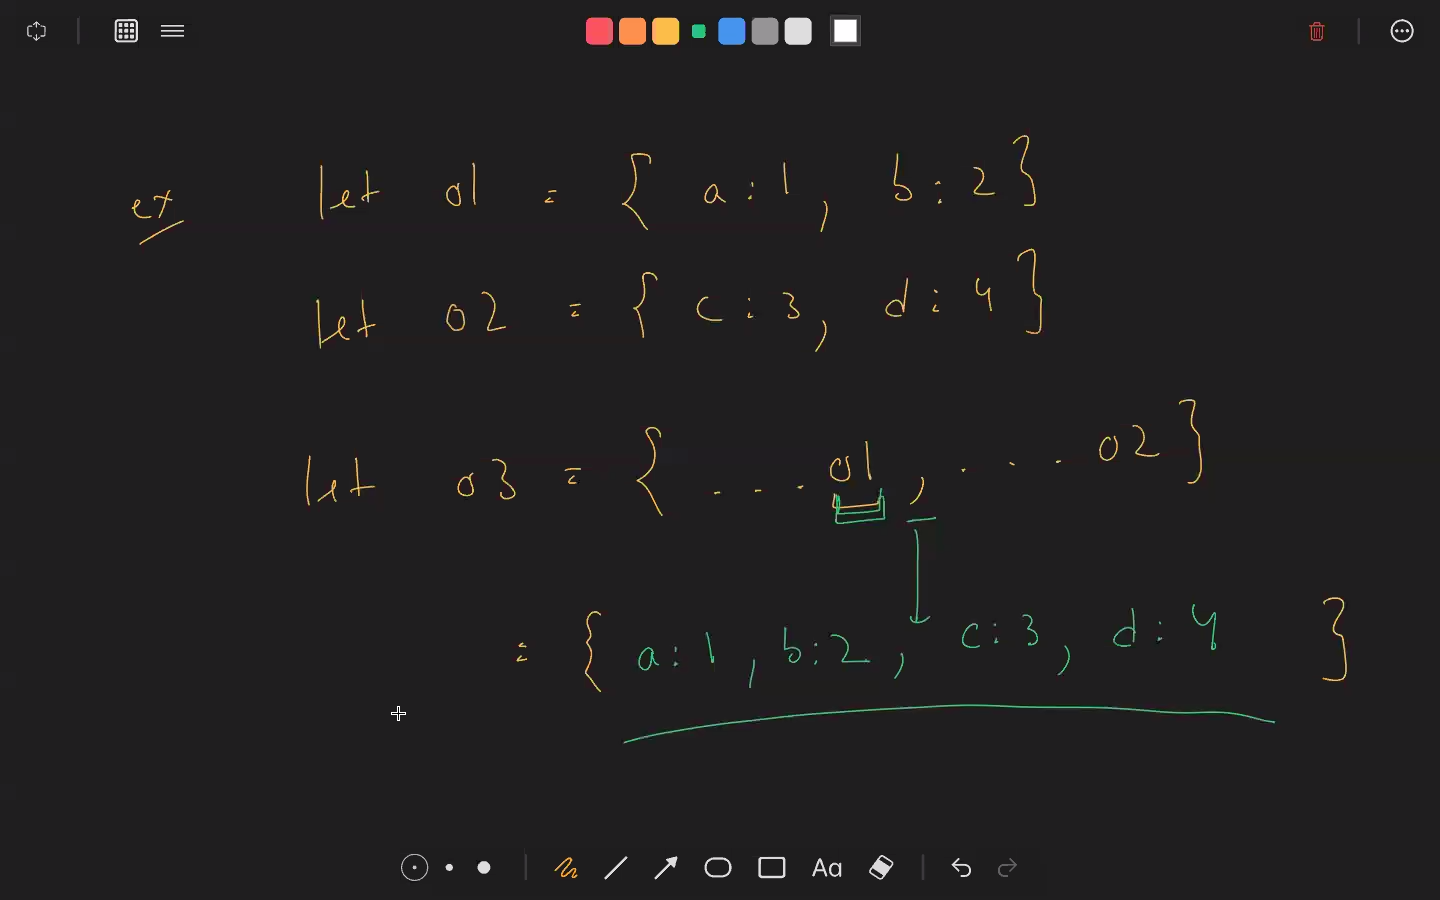 ex let o1 = { a : 1 , b : 2 }
let o2 = { c : 3 , d : 4 }
let o3 = { ... o1 , ... o2 }
= { a : 1 , b : 2 , c : 3 , d : 4 }
Aa